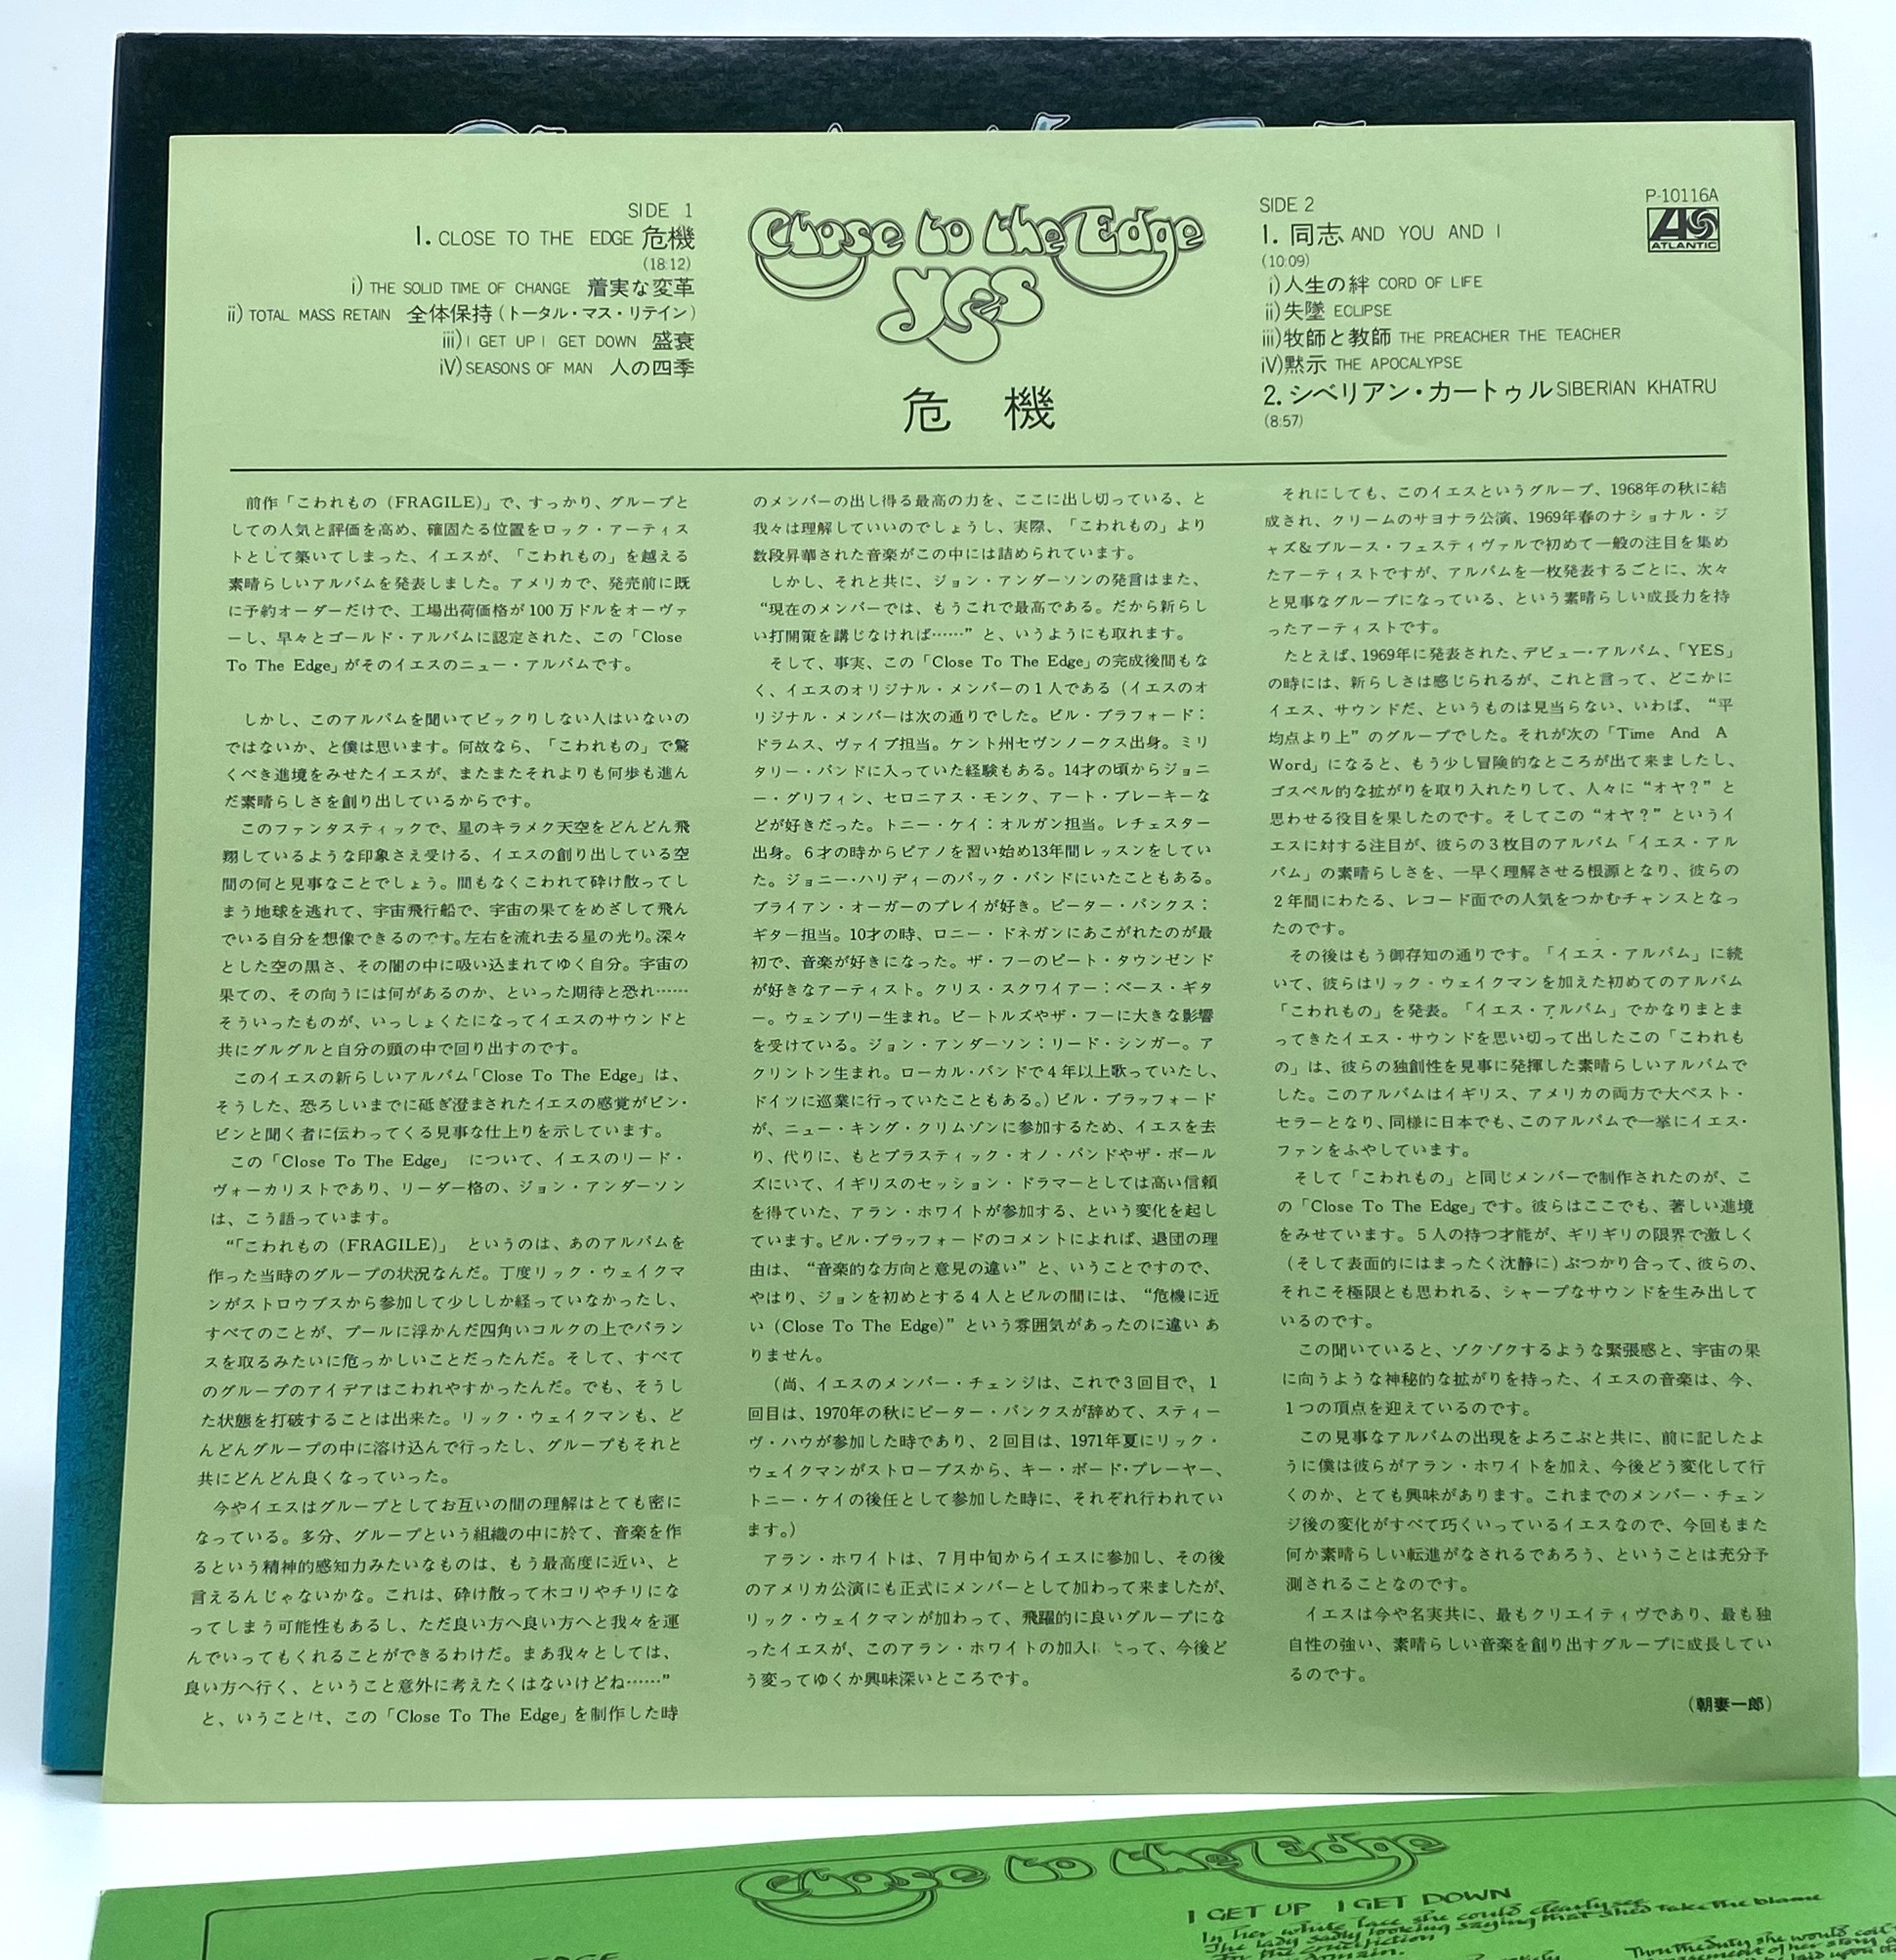 SIDE 1
1. CLOSE TO THE EDGE 危機
(18:12)
i) THE SOLID TIME OF CHANGE 着実な変革
ii) TOTAL MASS RETAIN 全体保持(トータル・マス・リテイン)
iii) I GET UP I GET DOWN 盛衰
iV) SEASONS OF MAN 人の四季
Close to the Edge
YES
危機
SIDE 2
1. 同志 AND YOU AND I
(10:09)
i)人生の絆 CORD OF LIFE
ii)失墜 ECLIPSE
iii)牧師と教師 THE PREACHER THE TEACHER
iV)黙示 THE APOCALYPSE
2. シベリアン・カートゥル SIBERIAN KHATRU
(8:57)
P-10116A
ATLANTIC
前作「こわれもの (FRAGILE)」で、すっかり、グループと
しての人気と評価を高め、確固たる位置をロック・アーティス
トとして築いてしまった、イエスが、「こわれもの」を越える
素晴らしいアルバムを発表しました。アメリカで、発売前に既
に予約オーダーだけで、工場出荷価格が100万ドルをオーヴァ
ーし、早々とゴールド・アルバムに認定された、この「Close
To The Edge」がそのイエスのニュー・アルバムです。
しかし、このアルバムを聞いてビックリしない人はいないの
ではないか、と僕は思います。何故なら、「こわれもの」で驚
くべき進境をみせたイエスが、またまたそれよりも何歩も進ん
だ素晴らしさを創り出しているからです。
このファンタスティックで、星のキラメク天空をどんどん飛
翔しているような印象さえ受ける、イエスの創り出している空
間の何と見事なことでしょう。間もなくこわれて砕け散ってし
まう地球を逃れて、宇宙飛行船で、宇宙の果てをめざして飛ん
でいる自分を想像できるのです。左右を流れ去る星の光り。深々
とした空の黒さ、その闇の中に吸い込まれてゆく自分。宇宙の
果ての、その向うには何があるのか、といった期待と恐れ……
そういったものが、いっしょくたになってイエスのサウンドと
共にグルグルと自分の頭の中で回り出すのです。
このイエスの新らしいアルバム「Close To The Edge」は、
そうした、恐ろしいまでに砥ぎ澄まされたイエスの感覚がビン・
ビンと聞く者に伝わってくる見事な仕上りを示しています。
この「Close To The Edge」 について、イエスのリード・
ヴォーカリストであり、リーダー格の、ジョン・アンダーソン
は、こう語っています。
“「こわれもの (FRAGILE)」 というのは、あのアルバムを
作った当時のグループの状況なんだ。丁度リック・ウェイクマ
ンがストロウブスから参加して少ししか経っていなかったし、
すべてのことが、プールに浮かんだ四角いコルクの上でバラン
スを取るみたいに危っかしいことだったんだ。そして、すべて
のグループのアイデアはこわれやすかったんだ。でも、そうし
た状態を打破することは出来た。リック・ウェイクマンも、ど
んどんグループの中に溶け込んで行ったし、グループもそれと
共にどんどん良くなっていった。
今やイエスはグループとしてお互いの間の理解はとても密に
なっている。多分、グループという組織の中に於て、音楽を作
るという精神的感知力みたいなものは、もう最高度に近い、と
言えるんじゃないかな。これは、砕け散って木コリやチリにな
ってしまう可能性もあるし、ただ良い方へ良い方へと我々を運
んでいってもくれることができるわけだ。まあ我々としては、
良い方へ行く、ということ意外に考えたくはないけどね……”
と、いうことは、この「Close To The Edge」を制作した時
のメンバーの出し得る最高の力を、ここに出し切っている、と
我々は理解していいのでしょうし、実際、「こわれもの」より
数段昇華された音楽がこの中には詰められています。
しかし、それと共に、ジョン・アンダーソンの発言はまた、
“現在のメンバーでは、もうこれで最高である。だから新らし
い打開策を講じなければ……”と、いうようにも取れます。
そして、事実、この「Close To The Edge」の完成後間もな
く、イエスのオリジナル・メンバーの1人である(イエスのオ
リジナル・メンバーは次の通りでした。ビル・ブラフォード:
ドラムス、ヴァイブ担当。ケント州セヴンノークス出身。ミリ
タリー・バンドに入っていた経験もある。14才の頃からジョニ
ー・グリフィン、セロニアス・モンク、アート・ブレーキーな
どが好きだった。トニー・ケイ:オルガン担当。レチェスター
出身。6才の時からピアノを習い始め13年間レッスンをしてい
た。ジョニー・ハリディーのバック・バンドにいたこともある。
ブライアン・オーガーのプレイが好き。ピーター・バンクス:
ギター担当。10才の時、ロニー・ドネガンにあこがれたのが最
初で、音楽が好きになった。ザ・フーのピート・タウンゼンド
が好きなアーティスト。クリス・スクワイアー:ベース・ギタ
ー。ウェンブリー生まれ。ビートルズやザ・フーに大きな影響
を受けている。ジョン・アンダーソン:リード・シンガー。ア
クリントン生まれ。ローカル・バンドで4年以上歌っていたし、
ドイツに巡業に行っていたこともある。)ビル・ブラッフォード
が、ニュー・キング・クリムゾンに参加するため、イエスを去
り、代りに、もとプラスティック・オノ・バンドやザ・ボール
ズにいて、イギリスのセッション・ドラマーとしては高い信頼
を得ていた、アラン・ホワイトが参加する、という変化を起し
ています。ビル・ブラッフォードのコメントによれば、退団の理
由は、“音楽的な方向と意見の違い”と、いうことですので、
やはり、ジョンを初めとする4人とビルの間には、“危機に近
い (Close To The Edge)”という雰囲気があったのに違いあ
りません。
(尚、イエスのメンバー・チェンジは、これで3回目で、1
回目は、1970年の秋にピーター・バンクスが辞めて、スティー
ヴ・ハウが参加した時であり、2回目は、1971年夏にリック・
ウェイクマンがストローブスから、キー・ボード・プレーヤー、
トニー・ケイの後任として参加した時に、それぞれ行われてい
ます。)
アラン・ホワイトは、7月中旬からイエスに参加し、その後
のアメリカ公演にも正式にメンバーとして加わって来ましたが、
リック・ウェイクマンが加わって、飛躍的に良いグループにな
ったイエスが、このアラン・ホワイトの加入によって、今後ど
う変ってゆくか興味深いところです。
それにしても、このイエスというグループ、1968年の秋に結
成され、クリームのサヨナラ公演、1969年春のナショナル・ジ
ャズ&ブルース・フェスティヴァルで初めて一般の注目を集め
たアーティストですが、アルバムを一枚発表するごとに、次々
と見事なグループになっている、という素晴らしい成長力を持
ったアーティストです。
たとえば、1969年に発表された、デビュー・アルバム、「YES」
の時には、新らしさは感じられるが、これと言って、どこかに
イエス、サウンドだ、というものは見当らない、いわば、“平
均点より上”のグループでした。それが次の「Time And A
Word」になると、もう少し冒険的なところが出て来ましたし、
ゴスペル的な拡がりを取り入れたりして、人々に“オヤ?”と
思わせる役目を果したのです。そしてこの“オヤ?”というイ
エスに対する注目が、彼らの3枚目のアルバム「イエス・アル
バム」の素晴らしさを、一早く理解させる根源となり、彼らの
2年間にわたる、レコード面での人気をつかむチャンスとなっ
たのです。
その後はもう御存知の通りです。「イエス・アルバム」に続
いて、彼らはリック・ウェイクマンを加えた初めてのアルバム
「こわれもの」を発表。「イエス・アルバム」でかなりまとま
ってきたイエス・サウンドを思い切って出したこの「こわれも
の」は、彼らの独創性を見事に発揮した素晴らしいアルバムで
した。このアルバムはイギリス、アメリカの両方で大ベスト・
セラーとなり、同様に日本でも、このアルバムで一挙にイエス・
ファンをふやしています。
そして「こわれもの」と同じメンバーで制作されたのが、こ
の「Close To The Edge」です。彼らはここでも、著しい進境
をみせています。5人の持つ才能が、ギリギリの限界で激しく
(そして表面的にはまったく沈静に)ぶつかり合って、彼らの、
それこそ極限とも思われる、シャープなサウンドを生み出して
いるのです。
この聞いていると、ゾクゾクするような緊張感と、宇宙の果
に向うような神秘的な拡がりを持った、イエスの音楽は、今、
1つの頂点を迎えているのです。
この見事なアルバムの出現をよろこぶと共に、前に記したよ
うに僕は彼らがアラン・ホワイトを加え、今後どう変化して行
くのか、とても興味があります。これまでのメンバー・チェン
ジ後の変化がすべて巧くいっているイエスなので、今回もまた
何か素晴らしい転進がなされるであろう、ということは充分予
測されることなのです。
イエスは今や名実共に、最もクリエイティヴであり、最も独
自性の強い、素晴らしい音楽を創り出すグループに成長してい
るのです。
(朝妻一郎)
Close to the Edge
I GET UP I GET DOWN
In her white lace she could clearly see
The lady sadly looking saying that shed take the blame
For the crucifiction
domain.
EDGE